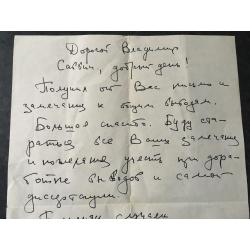 Дорогой Владимир
Саввич, добрый день!
Получил от Вас письмо и
замечания к общим выводам.
Большое спасибо. Буду ста-
раться все Ваши замечания
и пожелания учесть при дора-
ботке выводов и самой
диссертации.
случаем